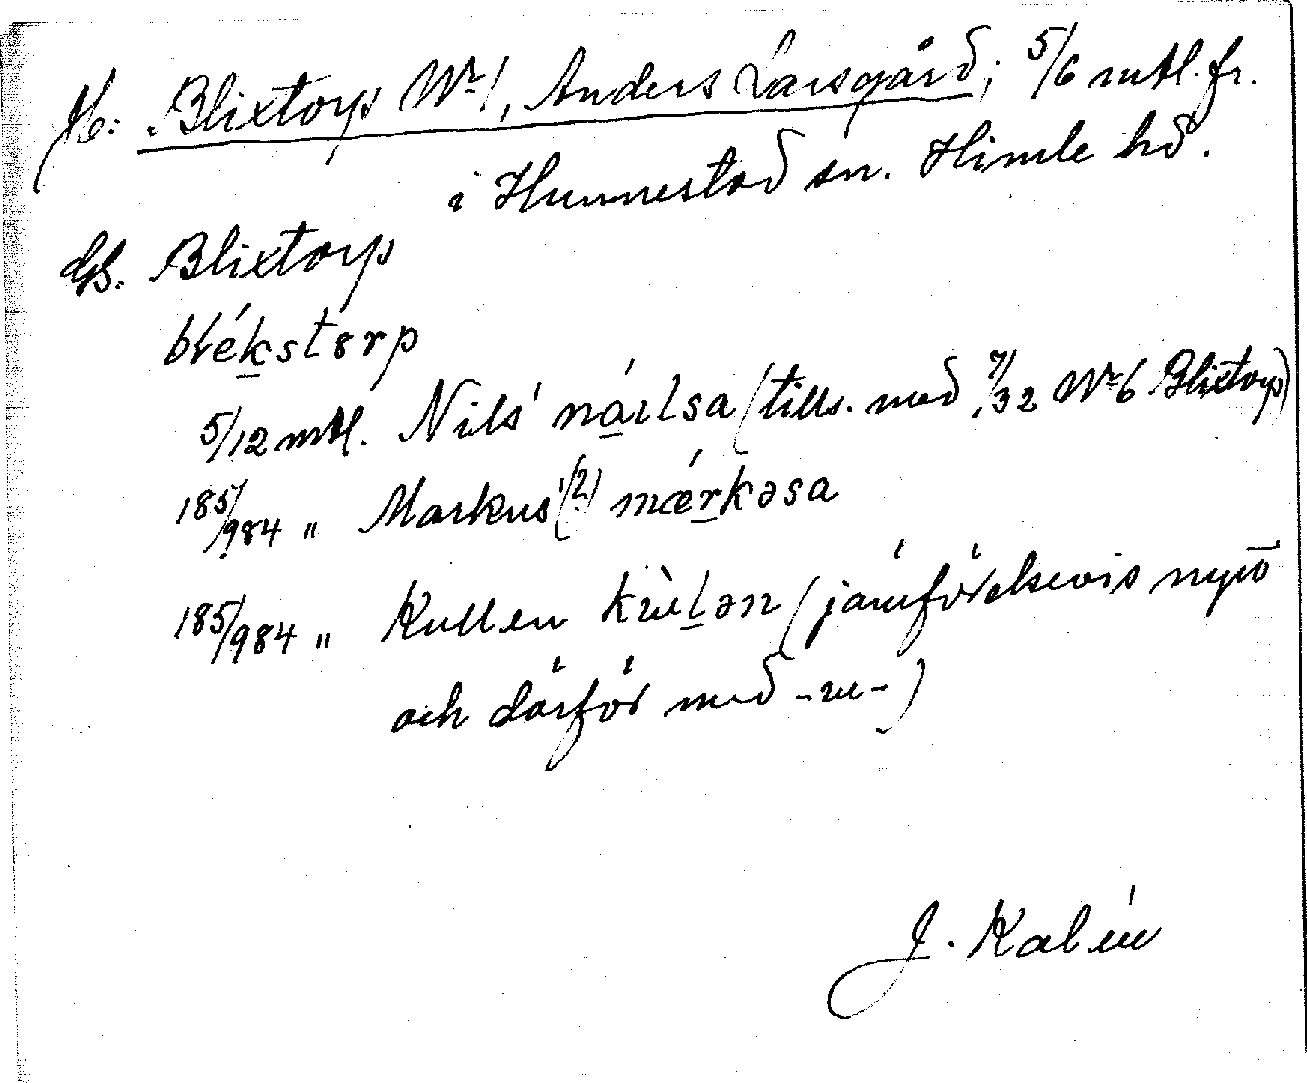 Jb: Blixtorp Nr 1, Anders Larsgård; 5/6 mtl. fr.
i Hunnestad sn. Himle hd.
GS. Blixtorp
blékstorp
5/12 mtl. Nils' nálsa (tills. med 7/32 Nr 6 Blixtorp)
185/984 " Markus' (?) mǽrkəsa
185/984 " Kullen kùlən (jämförelsevis nytt
och därför med -u-)
J. Kalén